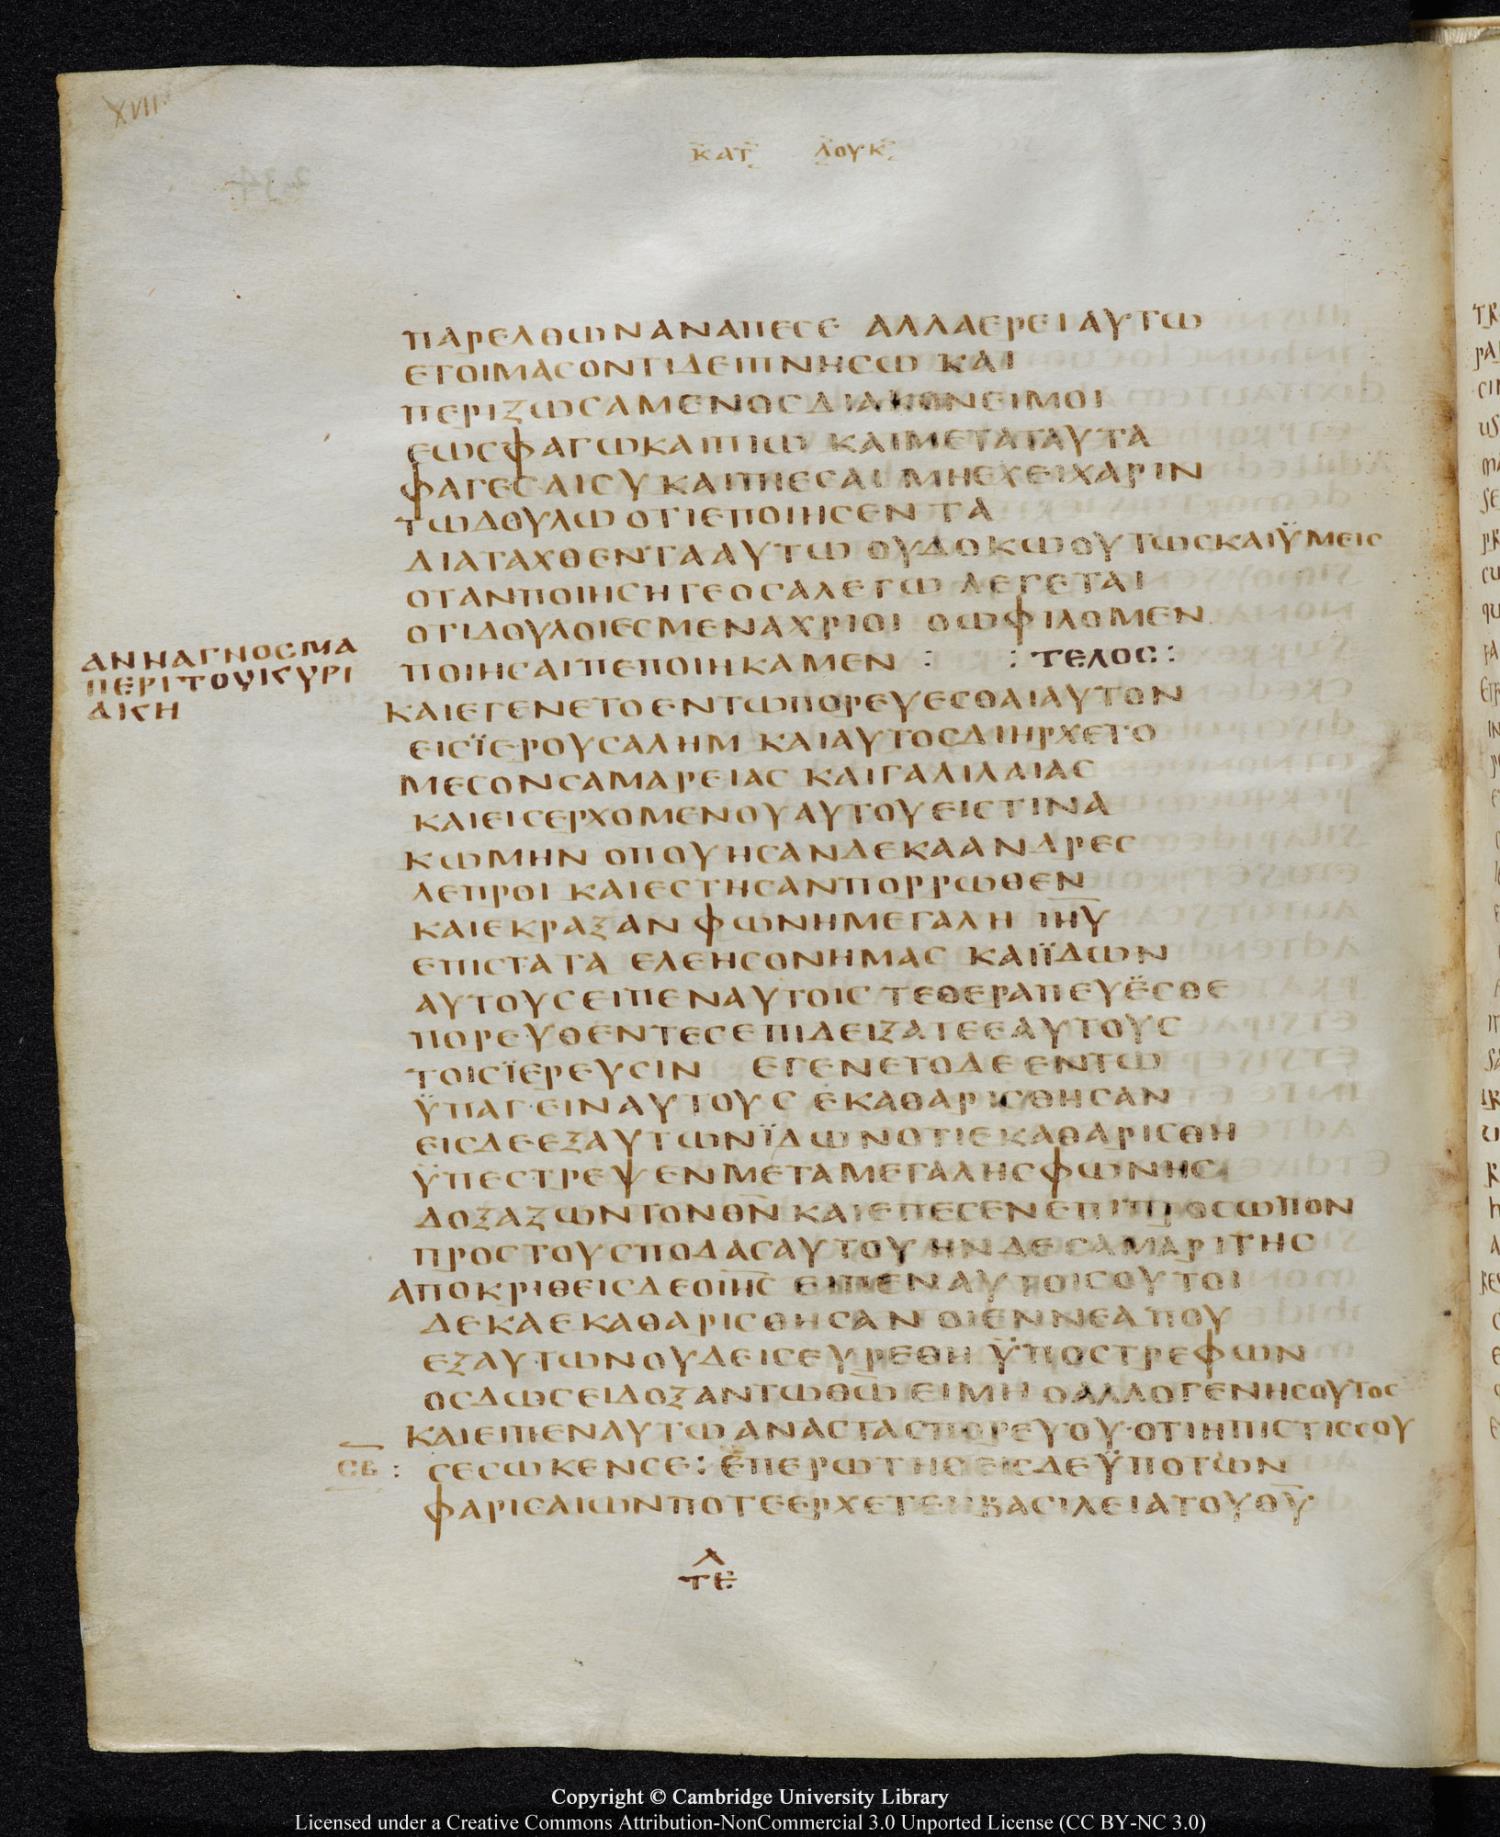 XVII
ΚΑΤ ΛΟΥΚ
ΠΑΡΕΛΘΩΝΑΝΑΠΕCΕ ΑΛΛΑΕΡΕΙΑΥΤΩ
ΕΤΟΙΜΑCΟΝΤΙΔΕΙΠΝΗCΩ ΚΑΙ
ΠΕΡΙΖΩCΑΜΕΝΟCΔΙΑΚΟΝΕΙΜΟΙ
ΕΩCΦΑΓΩΚΑΙΠΙΩ ΚΑΙΜΕΤΑΤΑΥΤΑ
ΦΑΓΕCΑΙCΥ ΚΑΙΠΙΕCΑΙ ΜΗΕΧΕΙΧΑΡΙΝ
ΤΩΔΟΥΛΩ ΟΤΙΕΠΟΙΗCΕΝ ΤΑ
ΔΙΑΤΑΧΘΕΝΤΑΑΥΤΩ ΟΥΔΟΚΩΟΥΤΩCΚΑΙΫΜΕΙC
ΟΤΑΝΠΟΙΗCΗΤΕΟCΑΛΕΓΩ ΛΕΓΕΤΑΙ
ΟΤΙΔΟΥΛΟΙΕCΜΕΝΑΧΡΙΟΙ ΟΩΦΙΛΟΜΕΝ
ΠΟΙΗCΑΙΠΕΠΟΙΗΚΑΜΕΝ : : ΤΕΛΟC :
ΑΝΝΑΓΝΟCΜΑ
ΠΕΡΙΤΟΥΚΥΡΙ
ΔΙΚΗ
ΚΑΙΕΓΕΝΕΤΟΕΝΤΩΠΟΡΕΥΕCΘΑΙΑΥΤΟΝ
ΕΙCΪΕΡΟΥCΑΛΗΜ ΚΑΙΑΥΤΟCΔΙΗΡΧΕΤΟ
ΜΕCΟΝCΑΜΑΡΕΙΑC ΚΑΙΓΑΛΙΛΑΙΑC
ΚΑΙΕΙCΕΡΧΟΜΕΝΟΥΑΥΤΟΥΕΙCΤΙΝΑ
ΚΩΜΗΝ ΟΠΟΥΗCΑΝΔΕΚΑΑΝΔΡΕC
ΛΕΠΡΟΙ ΚΑΙΕCΤΗCΑΝΠΟΡΡΩΘΕΝ
ΚΑΙΕΚΡΑΞΑΝ ΦΩΝΗΜΕΓΑΛΗ ΙΗΥ
ΕΠΙCΤΑΤΑ ΕΛΕΗCΟΝΗΜΑC ΚΑΙΪΔΩΝ
ΑΥΤΟΥCΕΙΠΕΝΑΥΤΟΙC ΤΕΘΕΡΑΠΕΥΕCΘΕ
ΠΟΡΕΥΘΕΝΤΕCΕΠΙΔΕΙΞΑΤΕΕΑΥΤΟΥC
ΤΟΙCΪΕΡΕΥCΙΝ ΕΓΕΝΕΤΟΔΕΕΝΤΩ
ΫΠΑΓΕΙΝΑΥΤΟΥC ΕΚΑΘΑΡΙCΘΗCΑΝ
ΕΙCΔΕΕΞΑΥΤΩΝΪΔΩΝΟΤΙΕΚΑΘΑΡΙCΘΗ
ΫΠΕCΤΡΕΨΕΝΜΕΤΑΜΕΓΑΛΗCΦΩΝΗC
ΔΟΞΑΖΩΝΤΟΝΘΝ ΚΑΙΕΠΕCΕΝΕΠΙΠΡΟCΩΠΟΝ
ΠΡΟCΤΟΥCΠΟΔΑCΑΥΤΟΥ ΗΝΔΕCΑΜΑΡΙΤΗC
ΑΠΟΚΡΙΘΕΙCΔΕΟΙΗC ΕΙΠΕΝΑΥΤΟΙCΟΥΤΟΙ
ΔΕΚΑΕΚΑΘΑΡΙCΘΗCΑΝ ΟΙΕΝΝΕΑΠΟΥ
ΕΞΑΥΤΩΝΟΥΔΕΙCΕΥΡΕΘΗ ΫΠΟCΤΡΕΦΩΝ
ΟCΔΩCΕΙΔΟΞΑΝΤΩΘΩ ΕΙΜΗ ΟΑΛΛΟΓΕΝΗCΟΥΤΟC
ΚΑΙΕΙΠΕΝΑΥΤΩ ΑΝΑCΤΑCΠΟΡΕΥΟΥ·ΟΤΙΗΠΙCΤΙCCΟΥ
CΒ : CΕCΩΚΕΝCΕ: ΕΠΕΡΩΤΗΘΕΙCΔΕΫΠΟΤΩΝ
ΦΑΡΙCΑΙΩΝΠΟΤΕΕΡΧΕΤΕΗΒΑCΙΛΕΙΑΤΟΥΘΥ
Λ
ΤΕ
Copyright © Cambridge University Library
Licensed under a Creative Commons Attribution-NonCommercial 3.0 Unported License (CC BY-NC 3.0)